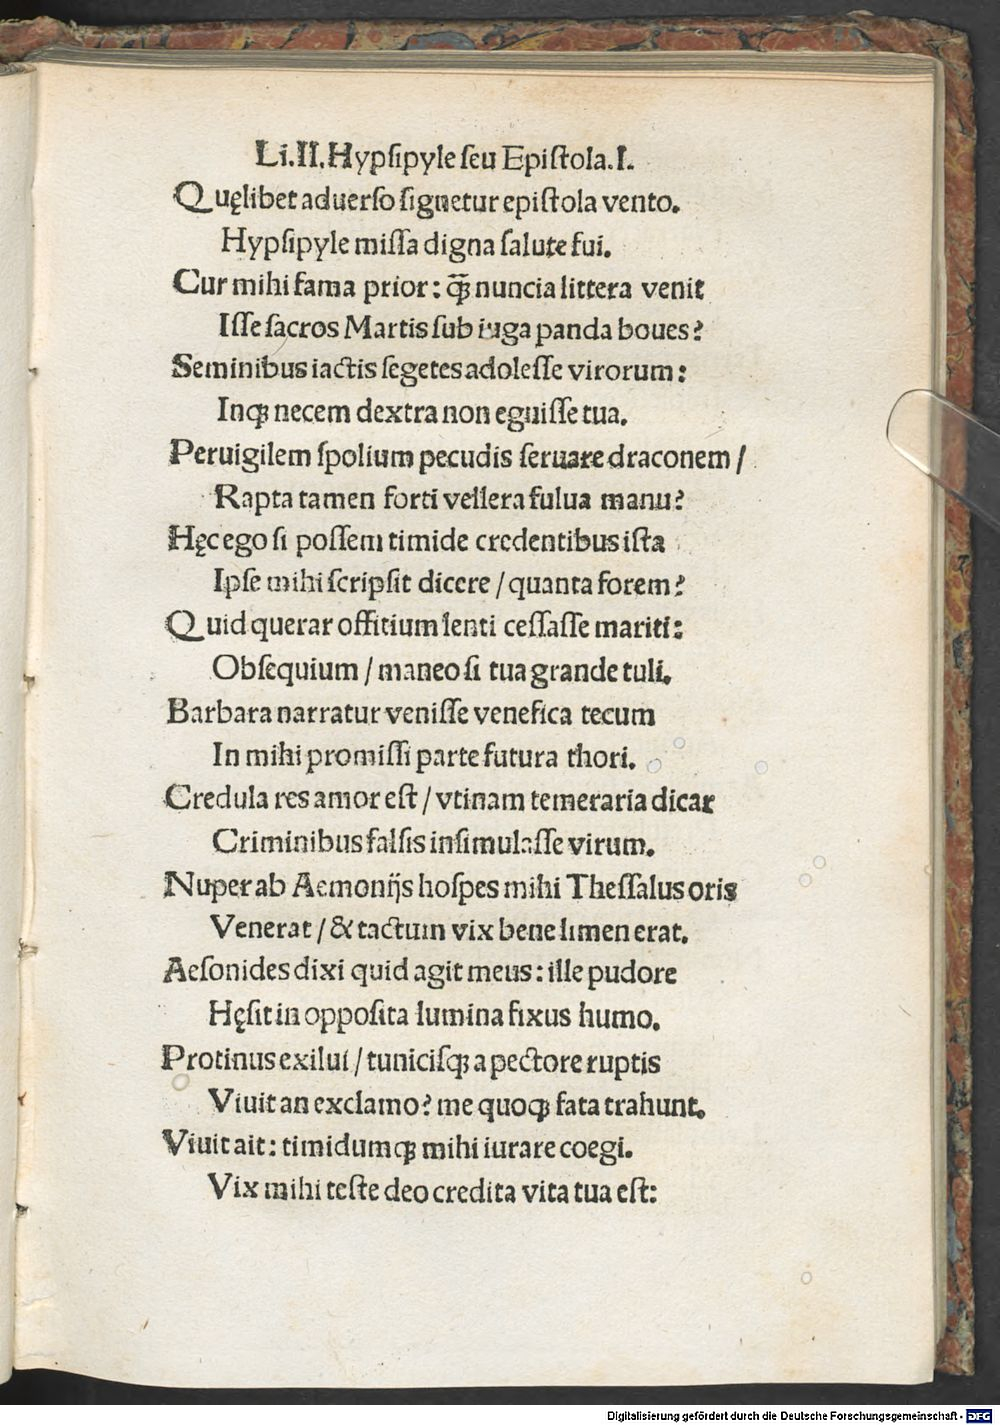 Li.II.Hypſipyle ſeu Epiſtola.I.
Quęlibet aduerſo ſignetur epiſtola vento.
Hypſipyle miſſa digna ſalute fui.
Cur mihi fama prior: q̃ꝫ nuncia littera venit
Iſſe ſacros Martis ſub iuga panda boues?
Seminibus iactis ſegetes adoleſſe virorum:
Inqꝫ necem dextra non eguiſſe tua.
Peruigilem ſpolium pecudis ſeruare draconem /
Rapta tamen forti vellera fulua manu?
Hęc ego ſi poſſem timide credentibus iſta
Ipſe mihi ſcripſit dicere / quanta forem?
Quid querar offitium lenti ceſſaſſe mariti:
Obſequium / maneo ſi tua grande tuli.
Barbara narratur veniſſe venefica tecum
In mihi promiſſi parte futura thori.
Credula res amor eſt / vtinam temeraria dicar
Criminibus falſis inſimulaſſe virum.
Nuper ab Aemonijs hoſpes mihi Theſſalus oris
Venerat / & tactum vix bene limen erat.
Aeſonides dixi quid agit meus: ille pudore
Hęſit in oppoſita lumina fixus humo.
Protinus exilui / tuniciſqꝫ a pectore ruptis
Viuit an exclamo? me quoqꝫ fata trahunt.
Viuit ait: timidumqꝫ mihi iurare coegi.
Vix mihi teſte deo credita vita tua eſt:
Digitalisierung gefördert durch die Deutsche Forschungsgemeinschaft - DFG